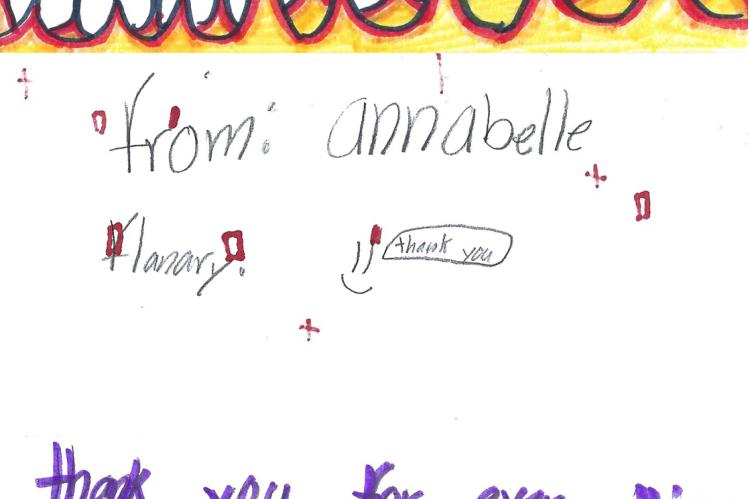 from: annabelle
Flanary.
thank you
thank you for